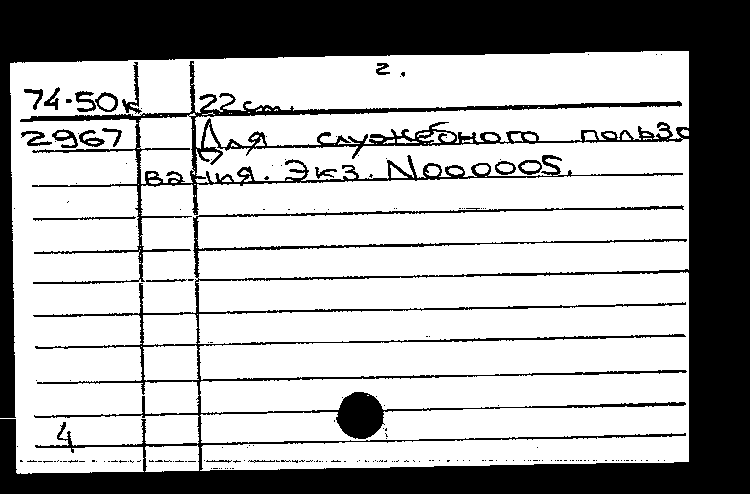 г.
74-50к 22 cm.
2967 Для служебного пользо
вания. Экз. N000005.
4